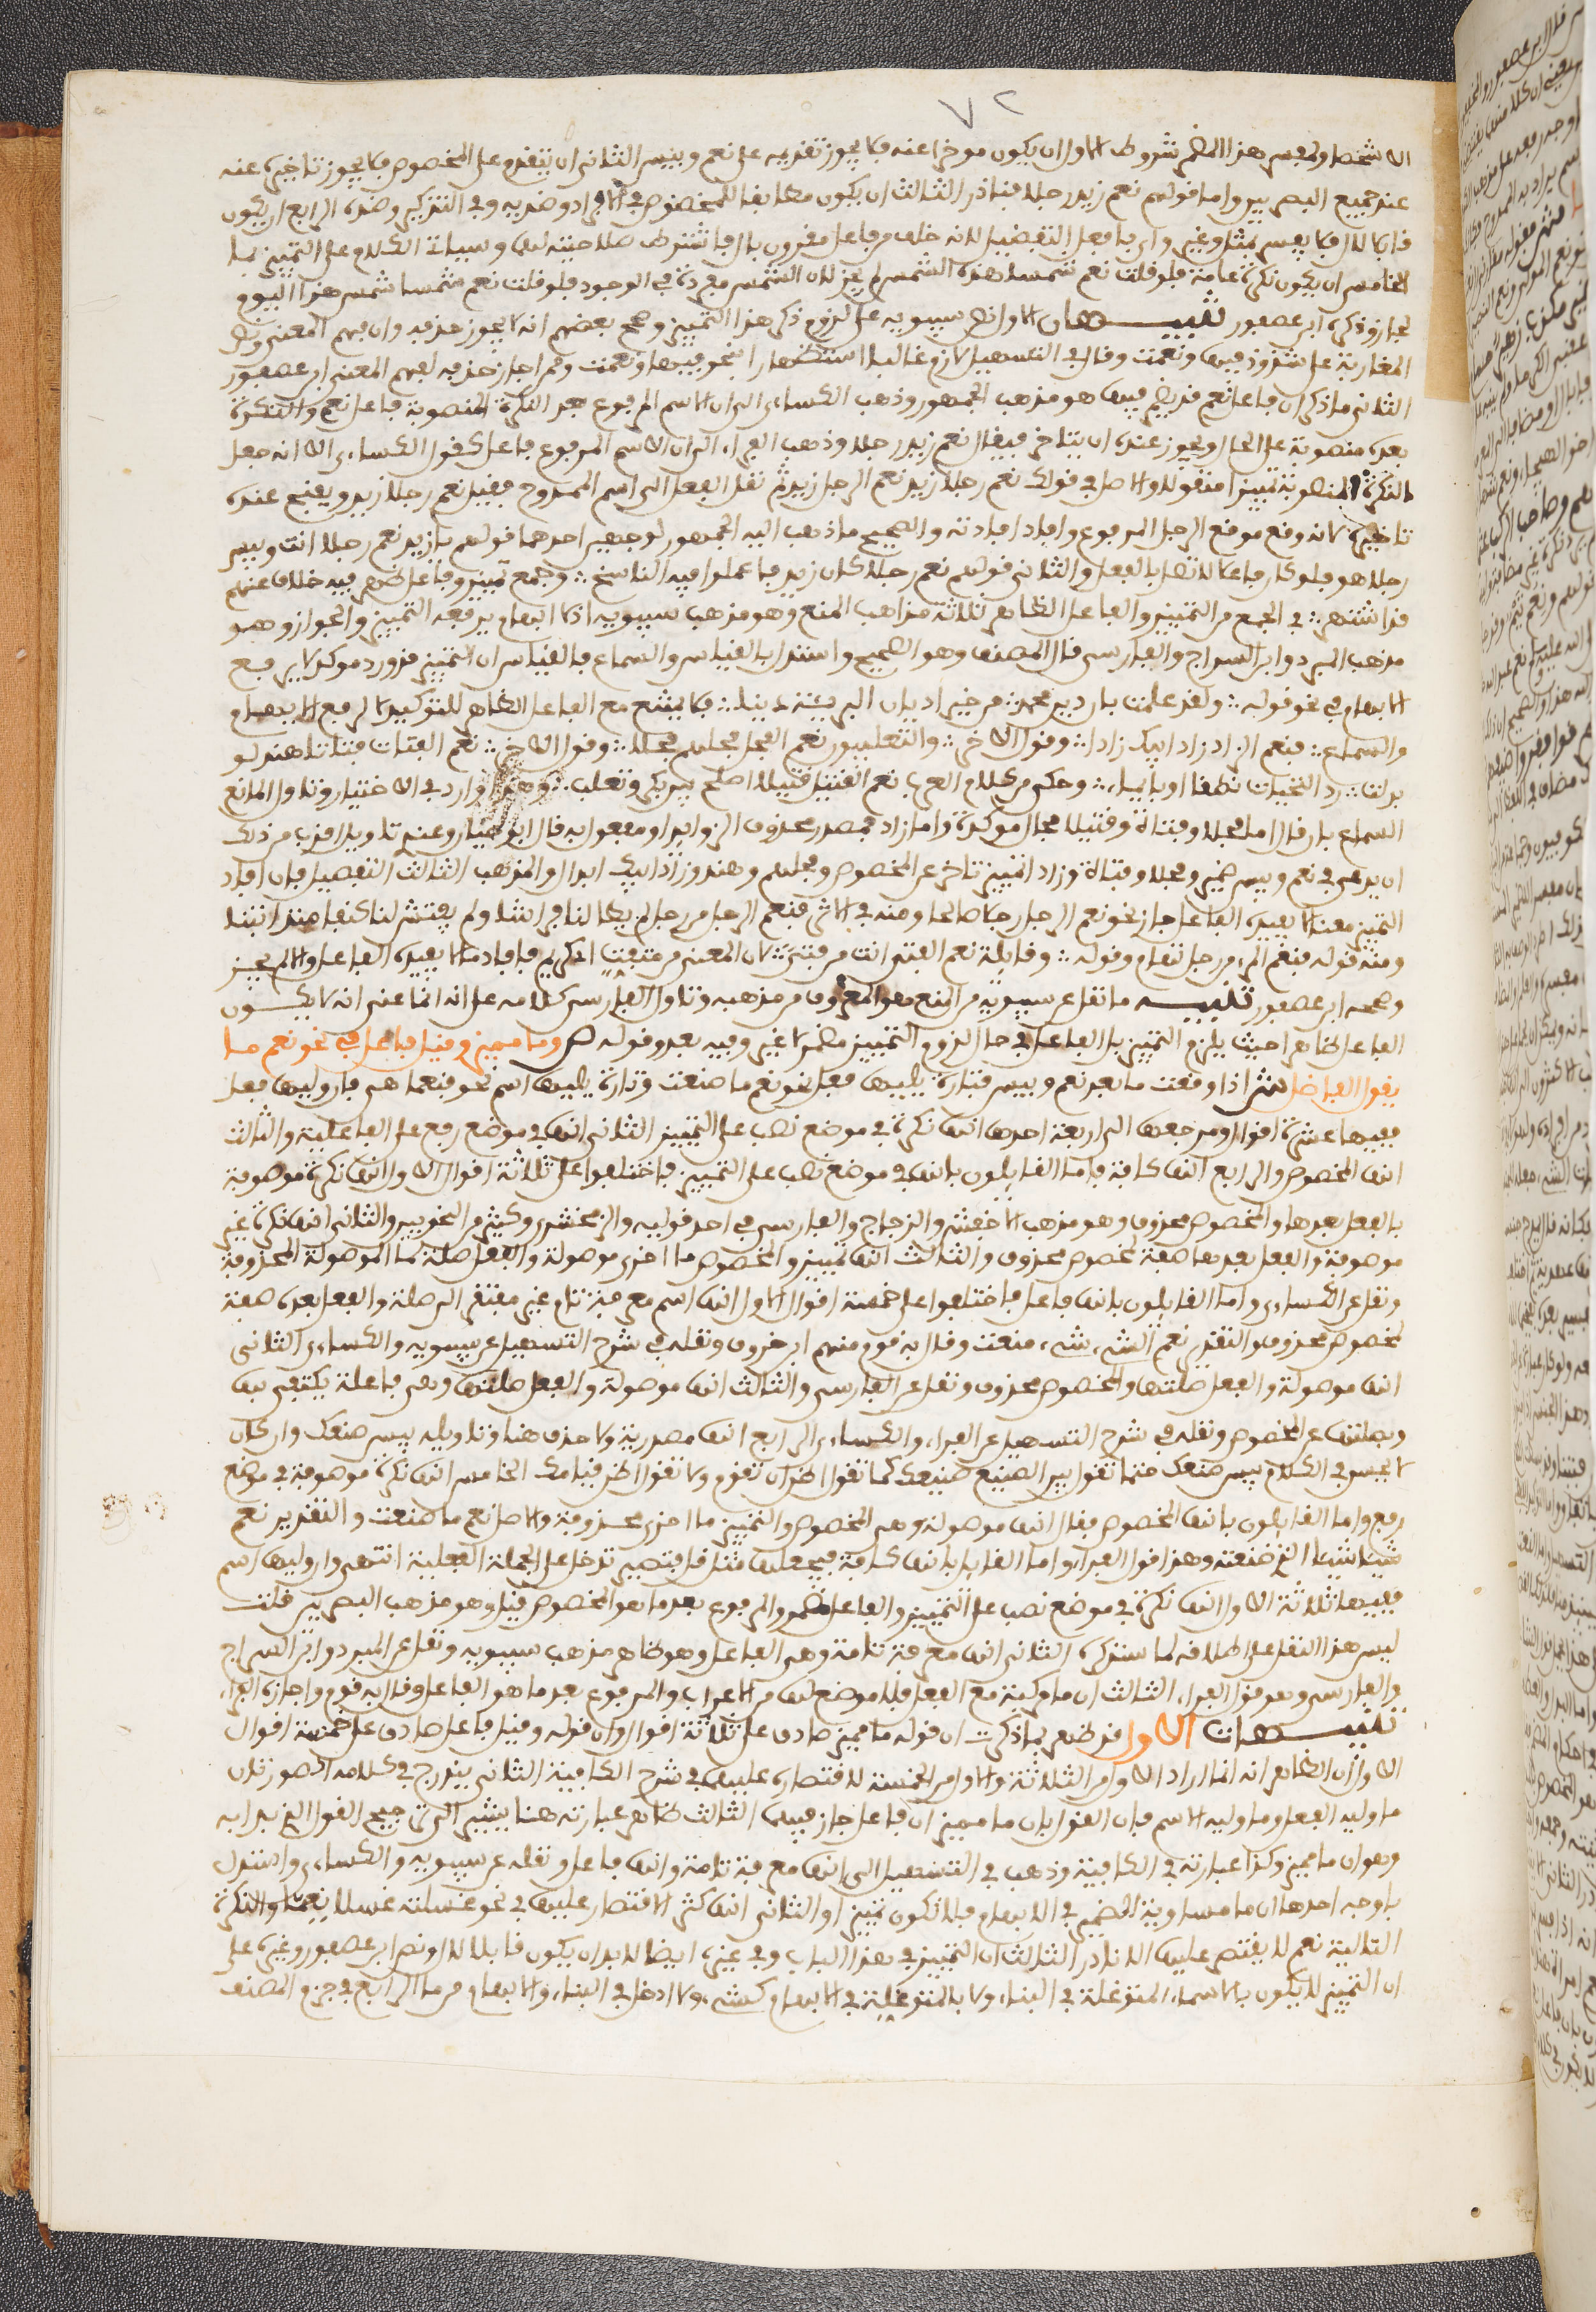 ٧٢
الا شخصا ولمفسر هذا المضمر شروط الاول ان يكون موخرا عنه فلا يجوز تقديمه على نعم وبيس الثاني ان يتقدم على المخصوص فلا يجوز تاخيره عنه
عند جميع البصريين واما قولهم نعم زيد رجلا فنادر الثالث ان يكون مطابقا للمخصوص في الافراد وضديه وفي التذكير وضده الرابع ان يكون
قابلا لال فلا يفسر بمثل وغير واي وافعل التفضيل لانه خلف من فاعل مقرون بال فاشترط صلاحيته لها وسياتي الكلام على التمييز بما
الخامس ان يكون نكرة عامة فلو قلت نعم شمسا هذه الشمس لم يجز لان الشمس مفردة في الوجود فلو قلت نعم شمسا شمس هذا اليوم
لجاز وذكره ابن عصفور تنبيهان الاول نص سيبويه على لزوم ذكر هذا التمييز وصحح بعضهم انه لا يجوز حذفه وان فهم المعنى ونص
المغاربة على شذوذ فبها ونعمت وقال في التسهيل لازم غالبا استظهارا بنحو فبها ونعمت وممن اجاز حذفه لفهم المعنى ابن عصفور
الثاني ما ذكر ان فاعل نعم قد يضمر فيها هو مذهب الجمهور وذهب الكساءي الى ان الاسم المرفوع بعد النكرة المنصوبة فاعل نعم والنكرة
بعده منصوبة على الحال ويجوز عنده ان يتاخر فيقال نعم زيد رجلا وذهب الفراء الى ان الاسم المرفوع فاعل كقول الكساءي الا انه جعل
النكرة المنصوبة تمييزا منقولا والاصل في قولك نعم رجلا زيد نعم الرجل زيد ثم نقل الفعل الى اسم الممدوح فقيل نعم رجلا زيد ويقبح عنده
تاخيره لانه وقع موقع الرجل المرفوع وافاد افادته والصحيح ما ذهب اليه الجمهور لوجهين احدهما قولهم يا زيد نعم رجلا انت وبيس
رجلا هو فلو كان فاعلا لاتصل بالفعل والثاني قولهم نعم رجلا كان زيد فاعملوا فيه الناسخ وجمع تمييز وفاعل ظهر فيه خلاف عنهم
قد اشتهر في الجمع من التمييز والفاعل الظاهر ثلاثة مذاهب المنع وهو مذهب سيبويه اذ لا ابهام يرفعه التمييز والجواز وهو
مذهب المبرد وابن السراج والفارسي قال المصنف وهو الصحيح واستدل بالقياس والسماع فالقياس ان التمييز قد ورد موكدا لا يرفع
الابهام في نحو قوله ولقد علمت بان دين محمد من خير اديان البرية دينا فلا يمتنع مع الفاعل الظاهر للتوكيد لا لرفع الابهام
والسماع فنعم الزاد زاد ابيك زادا وقول الاخر والتغلبيون نعم الفحل فحلهم فحلا وقول الاخر نعم الفتاة فتاة هند لو
بذلت رد التحية نطقا او بايماء وحكي من كلام العرب نعم القتيل قتيلا اصلح بين بكر وتغلب وهذا وارد في الاختيار وتاول المانع
السماع بان قال اما فحلا وفتاة وقتيلا فحال موكدة واما زاد فمصدر محذوف الزوايد او مفعول به قال ابن هشام وعندي تاويل اقرب من ذلك
ان يدعى في نعم وبيس ضمير وفحلا وفتاة وزاد تمييز تاخر عن المخصوص وفحلهم وهند وزاد ابيك ابدال والمذهب الثالث التفصيل فان افاد
التمييز معنى لا يفيده الفاعل جاز نحو نعم الرجل رجلا صالحا ومنه في الاثر فنعم الرجل من رجل لم يطا لنا فراشا ولم يفتش لنا كنفا منذ اتينا
ومنه قوله فنعم المرء من رجل تهام وقوله وقايلة نعم الفتى انت من فتى لان المعنى من متفت اي كريم فافاد ما لا يفيده الفاعل والا لم يجز
وصححه ابن عصفور تنبيه ما نقل عن سيبويه من المنع هو المعروف من مذهبه وتاول الفارسي كلامه على انه انما عنى انه لا يكون
الفاعل ظاهرا حيث يلزم التمييز بل الفاعل في حال لزوم التمييز مضمر لا غير وفيه بعد وقوله ص وما مميز وقيل فاعل في نحو نعم ما
يقول الفاضل ش اذا وقعت ما بعد نعم وبيس فتارة يليها فعل نحو نعم ما صنعت وتارة يليها اسم نحو فنعما هي فان وليها فعل
ففيها عشرة اقوال ومرجعها الى اربعة احدها انها نكرة في موضع نصب على التمييز الثاني انها في موضع رفع على الفاعلية والثالث
انها المخصوص والرابع انها كافة فاما القايلون بانها في موضع نصب على التمييز فاختلفوا على ثلاثة اقوال الاول انها نكرة موصوفة
بالفعل بعدها والمخصوص محذوف وهو مذهب الاخفش والزجاج والفارسي في احد قوليه والزمخشري وكثير من النحويين والثاني انها نكرة غير
موصوفة والفعل بعدها صفة لمخصوص محذوف والثالث انها تمييز والمخصوص ما اخرى موصولة والفعل صلة لما الموصولة المحذوفة
ونقل عن الكساءي واما القايلون بانها فاعل فاختلفوا على خمسة اقوال الاول انها اسم معرفة تام غير مفتقر الى صلة والفعل بعده صفة
لمخصوص محذوف والتقدير نعم الشيء شيء صنعت وقال به قوم منهم ابن خروف ونقله في شرح التسهيل عن سيبويه والكساءي الثاني
انها موصولة والفعل صلتها والمخصوص محذوف ونقل عن الفارسي والثالث انها موصولة والفعل صلتها وهي فاعلة يكتفى بها
وبصلتها عن المخصوص ونقله في شرح التسهيل عن الفراء والكساءي الرابع انها مصدرية ولا حذف هنا وتاويله بيس صنعك وان كان
لا يحسن في الكلام بيس صنعك حتى تقول بيس الصنيع صنيعك كما تقول اظن ان تقوم ولا تقول اظن قيامك الخامس انها نكرة موصوفة في موضع
رفع واما القايلون بانها المخصوص فقال انها موصولة وهي المخصوص والتمييز ما اخرى محذوفة والاصل نعم ما صنعت والتقدير نعم
شيئا شيئا الذي صنعته وهذا قول الفراء واما القايل بانها كافة فيجعلها مثل قل فتصير تدخل على الجملة الفعلية انتهى وان وليها اسم
ففيها ثلاثة الاول انها نكرة في موضع نصب على التمييز والفاعل مضمر والمرفوع بعد ما هو المخصوص قيل وهو مذهب البصريين قلت
ليس هذا النقل على اطلاقه لما سنذكره الثاني انها معرفة تامة وهي الفاعل وهو ظاهر مذهب سيبويه ونقل عن المبرد وابن السراج
والفارسي وهو قول الفراء الثالث ان ما ركبت مع الفعل فلا موضع لها من الاعراب والمرفوع بعد ما هو الفاعل وقال به قوم واجازه الفراء
تنبيهات الاول قد ظهر بما ذكرت ان قوله ما مميز صادق على ثلاثة اقوال وان قوله وقيل فاعل صادق على خمسة اقوال
الاول لان الظاهر انه انما اراد الاول من الثلاثة والاول من الخمسة لاقتصاره عليهما في شرح الكافية الثاني يندرج في كلامه الصورتان
ما وليه الفعل وما وليه الاسم فان القول بان ما مميز او فاعل جاز فيهما الثالث ظاهر عبارته هنا يشير الى ترجيح القول الذي بدا به
وهو ان ما مميز وكذا عبارته في الكافية وذهب في التسهيل الى انها معرفة تامة وانها فاعل ونقله عن سيبويه والكساءي واستدل
باوجه احدها ان ما مساوية الضمير في الابهام فلا تكون تمييزا والثاني انها كثر الاقتصار عليها في نحو غسلته غسلا نعما والنكرة
التالية نعم لا يقتصر عليها الا نادرا الثالث ان التمييز في هذا الباب وفي غيره ايضا لا بد ان يكون قابلا لال ونص ابن عصفور وغيره على
ان التمييز لا يكون بالاسماء المتوغلة في البناء ولا بالمتوغلة في الابهام كشيء ولا ادخل في البناء والابهام من ما الرابع في جزم المصنف